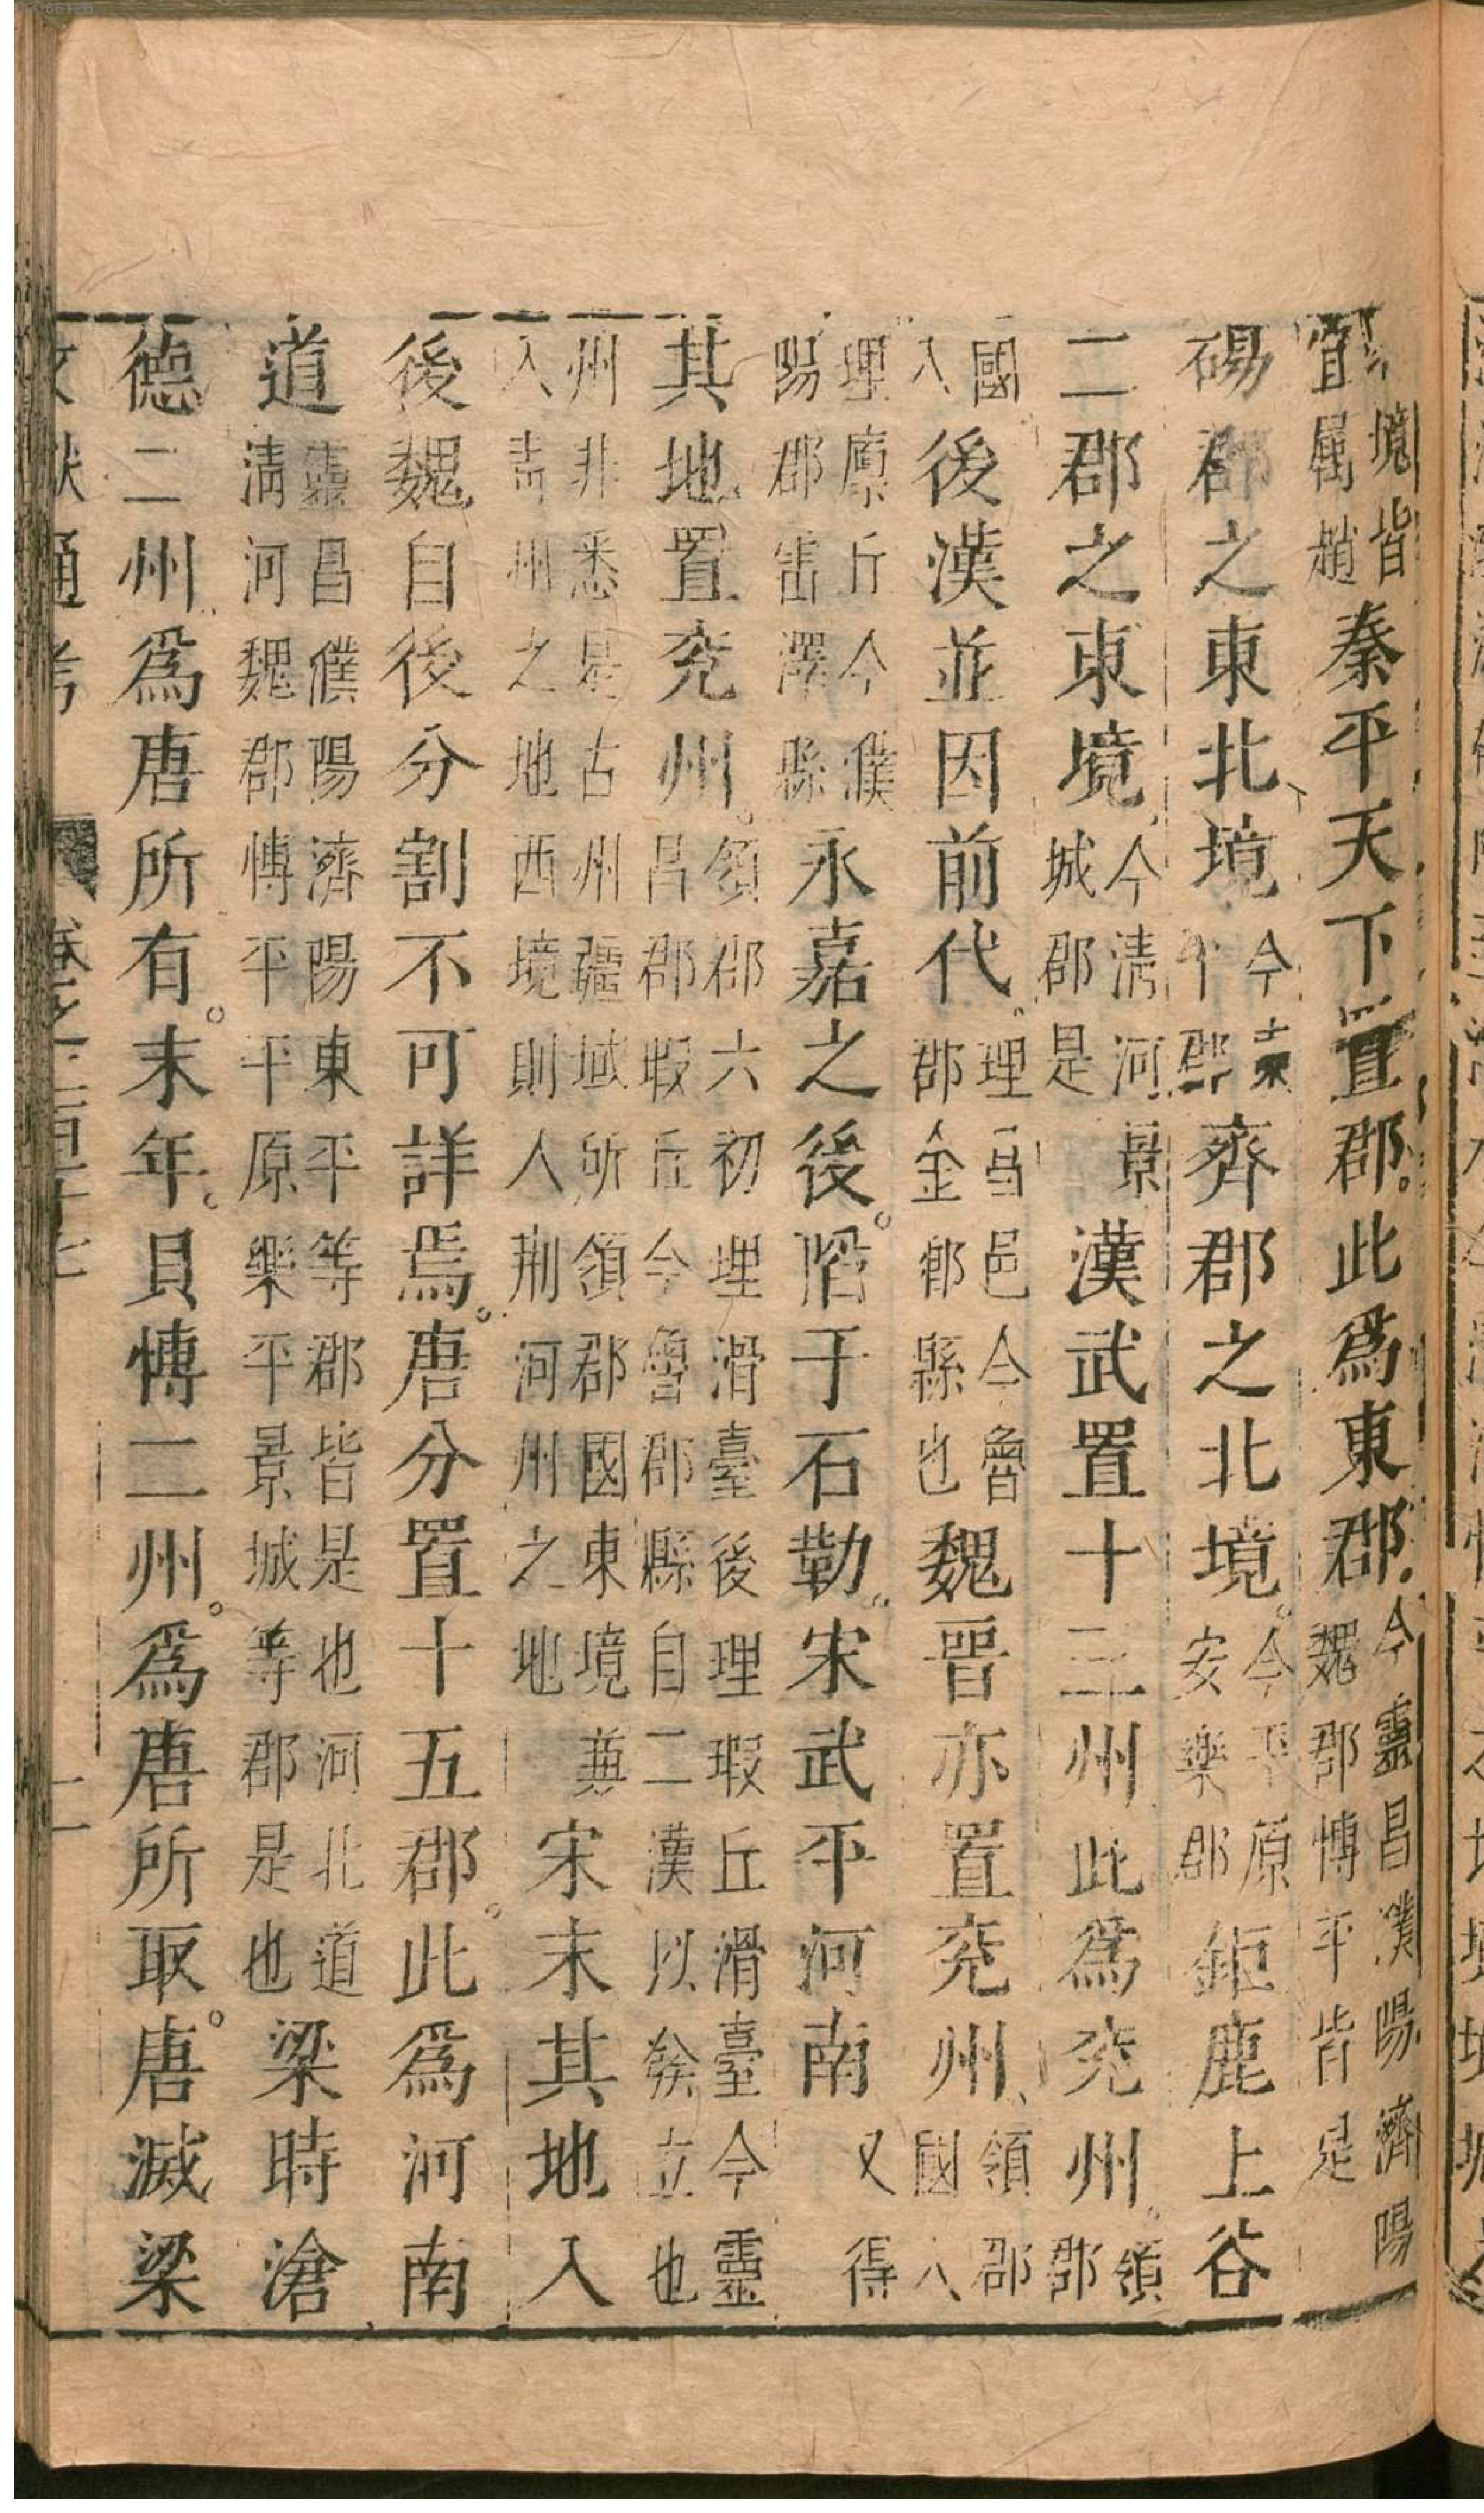 境皆宜屬趙秦平天下置郡。此爲東郡。今靈昌濮陽濟陽魏郡博平皆是
碭郡之東北境今東平郡齊郡之北境。今平原安樂郡鉅鹿上谷
二郡之東境今清河景城郡是漢武置十三州此爲兖州。領郡
國八後漢並因前代。理昌邑今魯郡金鄉縣也魏晉亦置兖州領郡國八
理廪丘今濮陽郡雷澤縣永嘉之後。陷于石勒。宋武平河南又得
其地置兖州。領郡六初理滑臺後理瑕丘滑臺今靈昌郡瑕丘今魯郡縣自二漢以矦立也
州非悉是古州疆域所領郡國東境兼入青州之地西境則入荆河州之地宋末其地入
後魏自後分割不可詳焉。唐分置十五郡。此爲河南
道靈昌濮陽濟陽東平等郡皆是也河北道清河魏郡博平平原樂平景城等郡是也梁時滄
德二州爲唐所有。末年。貝博二州。爲唐所取。唐滅梁
文獻通考